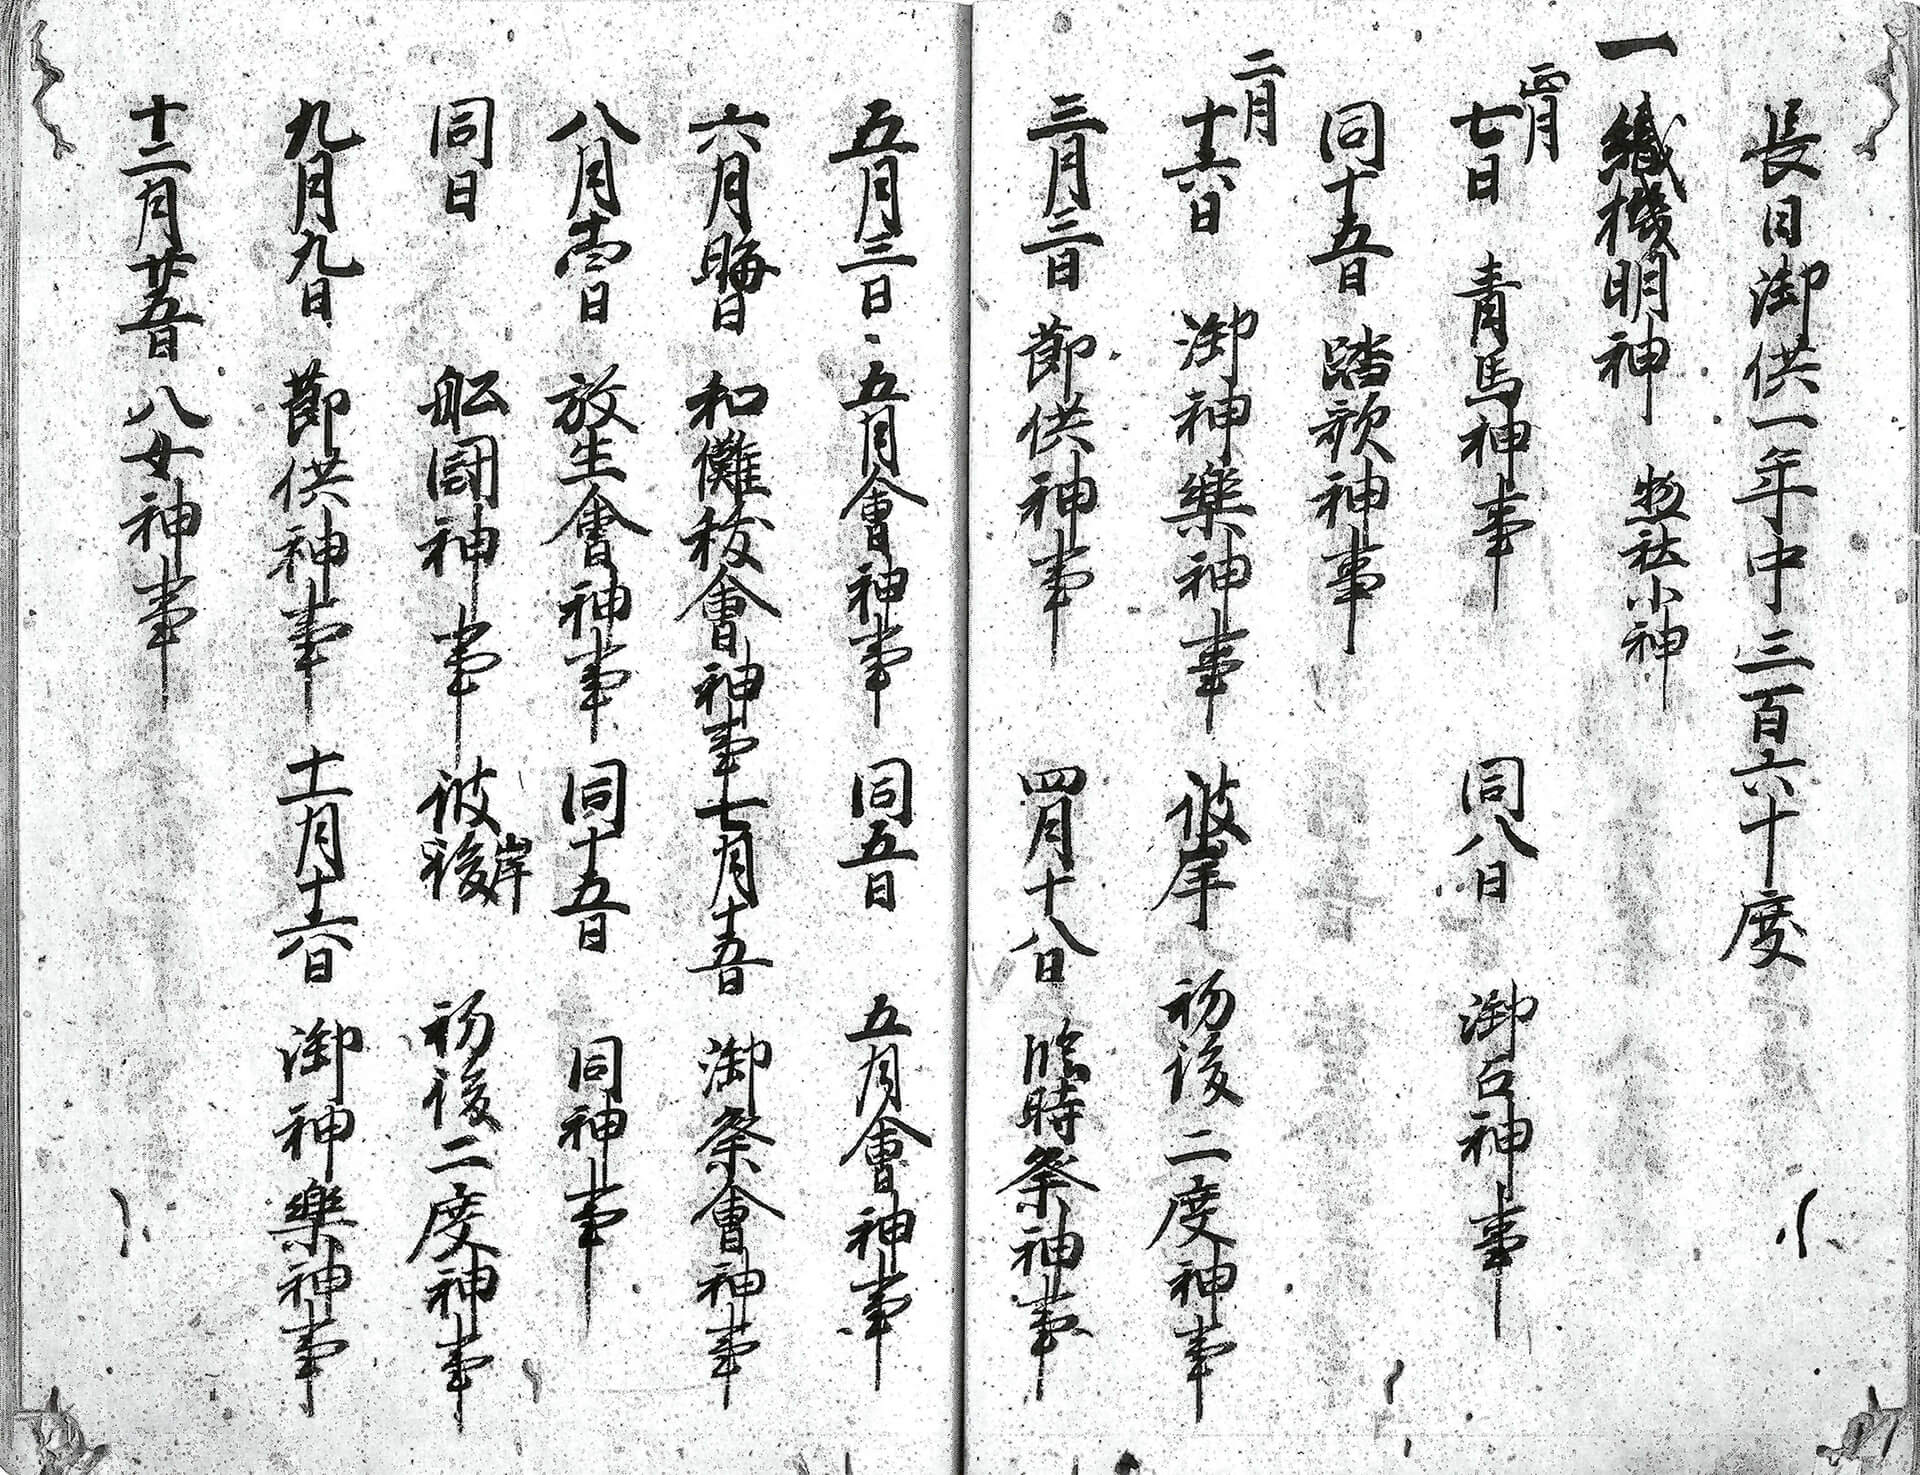 長日御供一年中三百六十度
一織機明神 惣社小神
正月
七日 青馬神事 同八日 御占神事
同十五日 踏歌神事
二月
十六日 御神樂神事 彼岸 初後二度神事
三月三日 節供神事 四月十八日 臨時祭神事
五月三日 五月會神事 同五日 五月會神事
六月晦日 和儺祓會神事 七月十五日 御祭會神事
八月十四日 放生會神事 同十五日 同神事
同日 舩闘神事 彼岸後 初後二度神事
九月九日 節供神事 十一月十六日 御神樂神事
十二月廿五日 八女神事